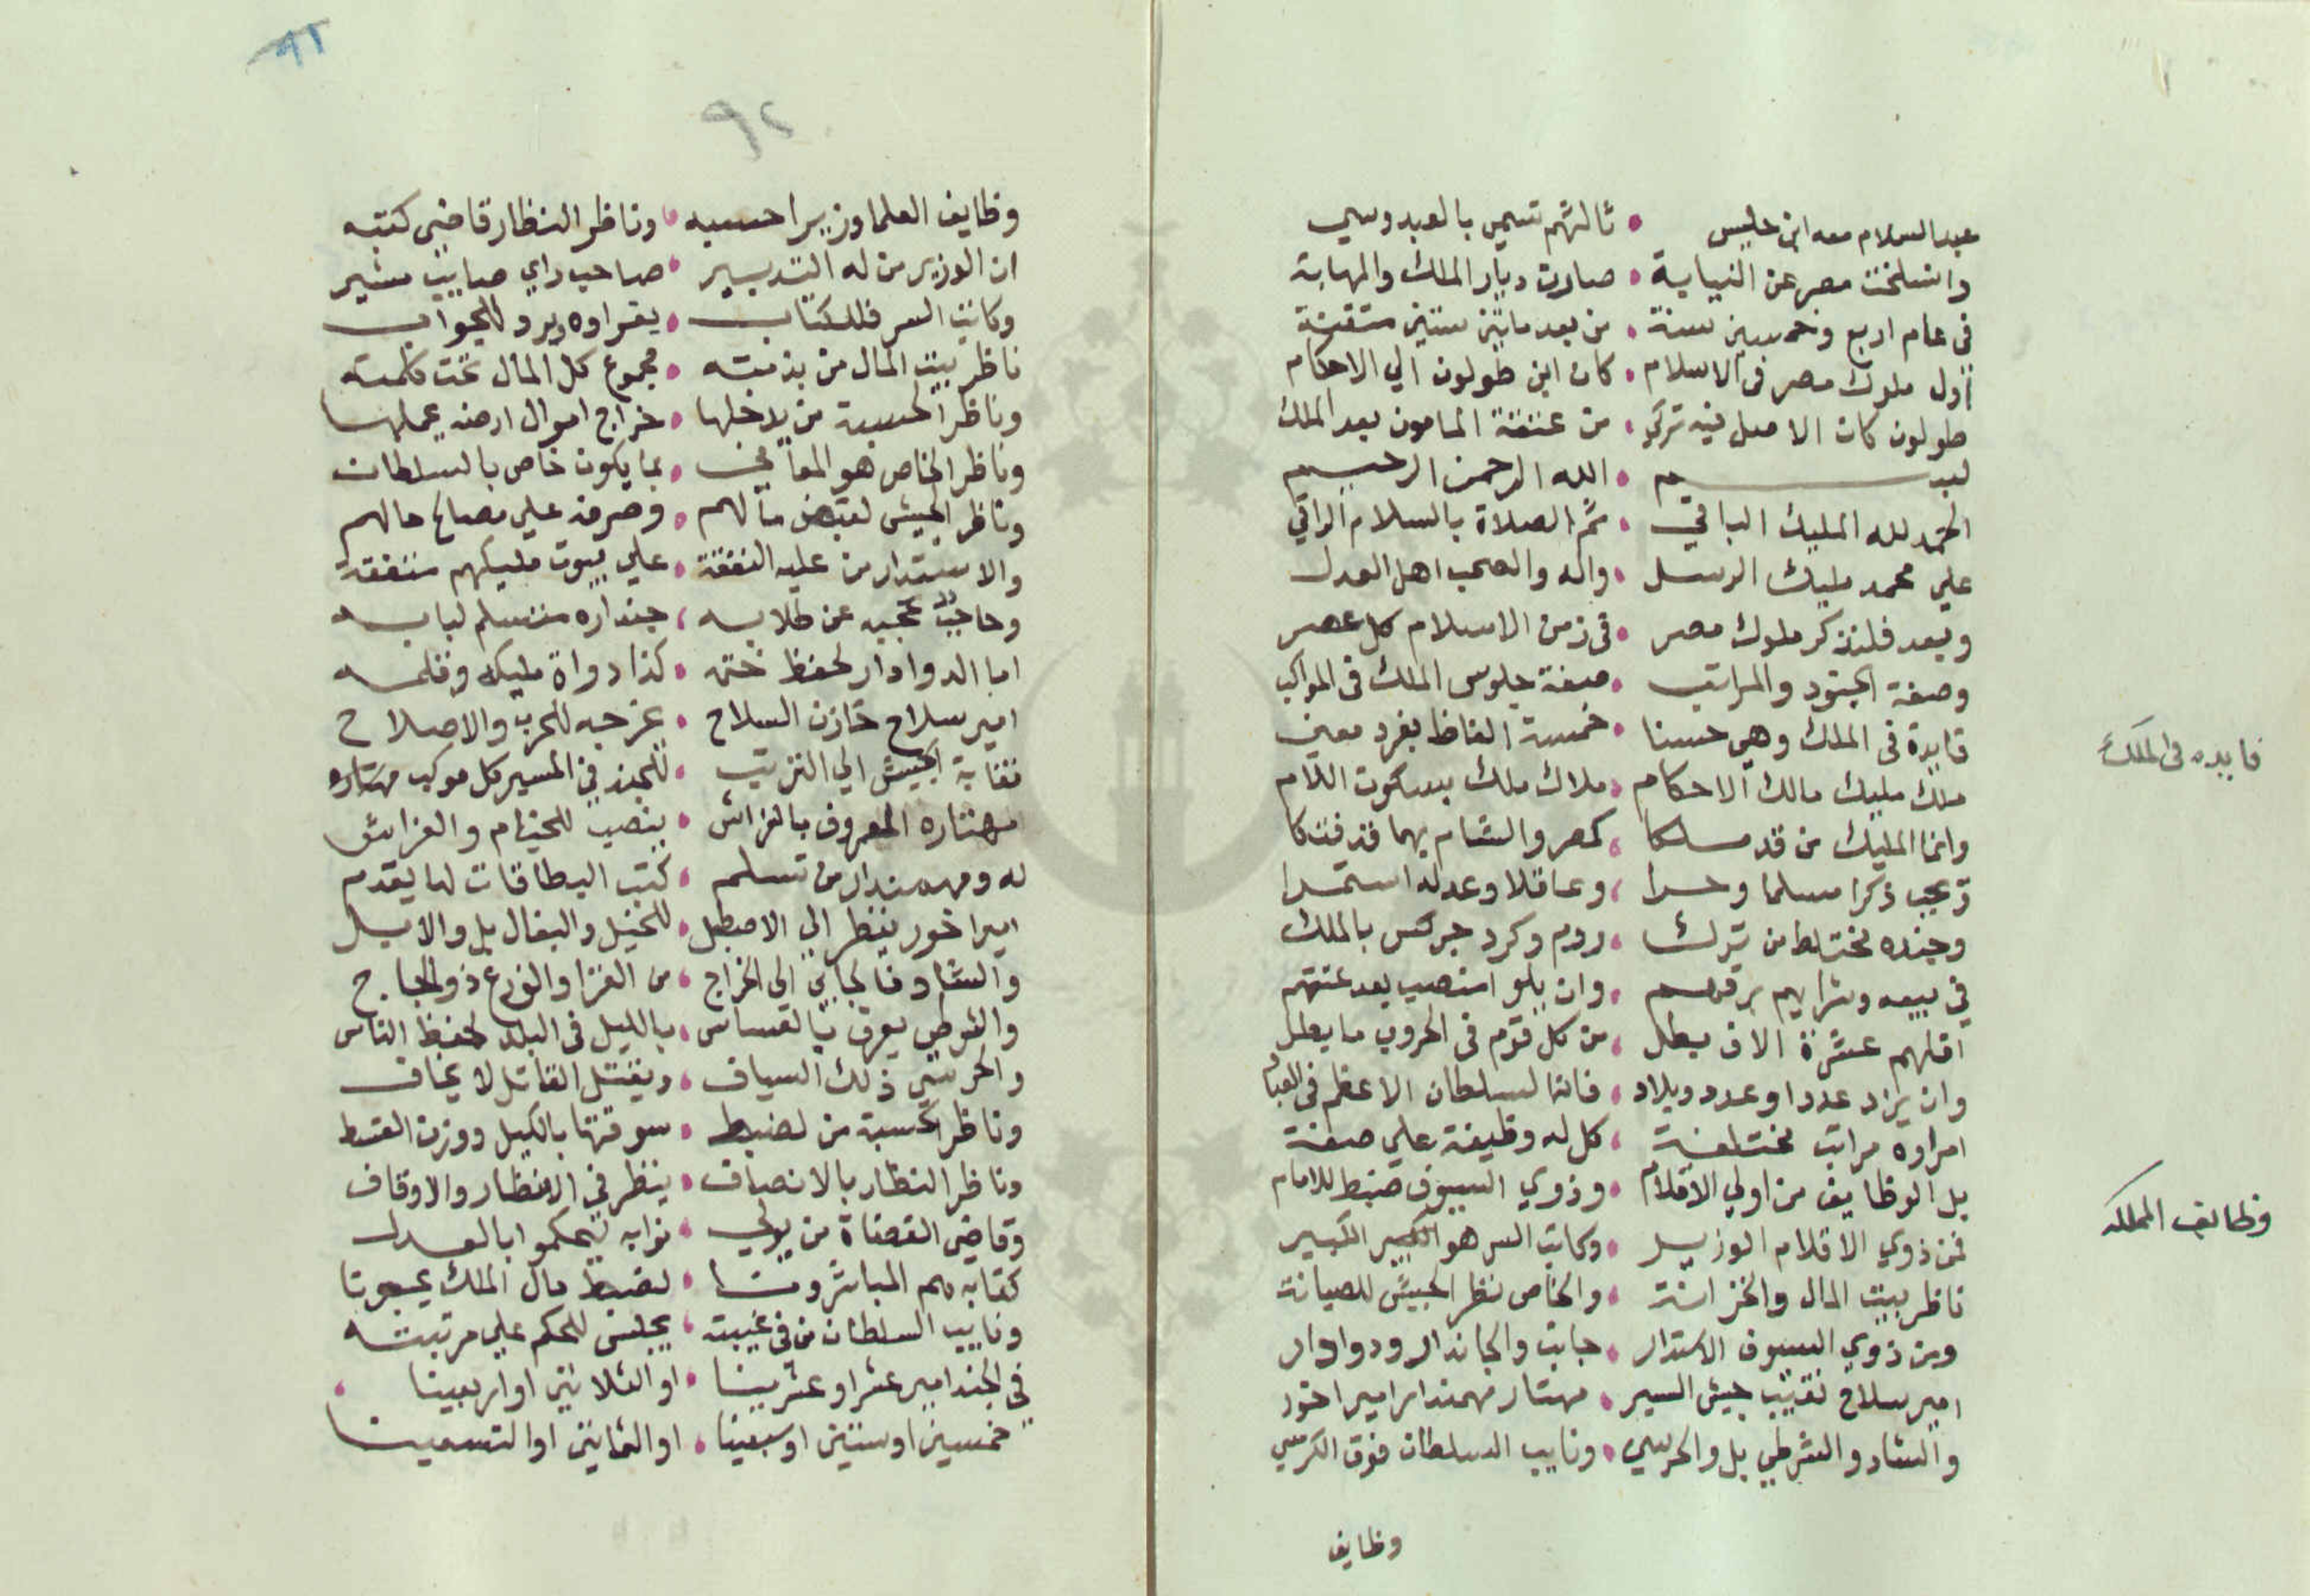 عبد السلام معه ابن حليس • ثالثهم تسمي بالعبدوسي
وانسلخت مصر عن النيابة • صارت ديار الملك والمهابة
في عام اربع وخمسين سنة • من بعد مايتين سنين متقنة
أول ملوك مصر في الاسلام • كان ابن طولون الي الاحكام
طولون كان الاصل فيه تركي • من عتقة المامون بعد الملك
بسم • الله الرحمن الرحيم
الحمد لله المليك الباقي • ثم الصلاة بالسلام الراقي
علي محمد مليك الرسل • واله والصحب اهل العدل
وبعد فلنذكر ملوك مصر • في زمن الاسلام كل عصر
وصفة الجنود والمراتب • صفة جلوس الملك في المواكب
فايدة في الملك وهي حسنا • خمسة الفاظ بفرد معني
فايده في الملك
ملك مليك مالك الاحكام • ملاك ملك بسكون اللام
وانما المليك من قد ملكا • كمصر والشام بهما قد فتكا
ذكرا مسلما وحرا • وعاقلا وعدله استمرا
وجنده مختلط من ترك • روم وكرد جركس بالملك
في بيعه وشرايهم برقهم • وان بلو امنصب بعد عتقهم
اقلهم عشرة الاف بطل • من كل قوم في الحروب ما بطل
وان يزاد عددا وعدد وبلاد • فانه السلطان الاعظم في العباد
امراوه مراتب مختلفة • كل له وظيفة علي صفة
بل الوظايف من اولي الاقلام • وذوي السيوف ضبط للامام
وظايف المملكه
فمن ذوي الاقلام الوزير • وكاتب السر هو الكبير
ناظر بيت المال والخزانة • والخاص نظر الجيش للصيانة
ومن ذوي السيوف الاستدار • حاجب والجاندار ودوادار
امير سلاح نقيب جيش السير • مهتار مهمندار امير اخور
والشاد والشرطي بل والحرسي • ونايب السلطان فوق الكرسي
وظايف
٩٢
وظايف العلما وزيرا حسبه • وناظر النظار قاضي كتبه
ان الوزير من له التدبير • صاحب راي صايب مشير
وكاتب السر فللكتاب • يقراوه ويرد للجواب
ناظر بيت المال من بذمته • مجموع كل المال تحت كلمته
وناظر الحسبة من يدخلها • خراج اموال ارضه يحملها
وناظر الخاص هو المعاني • بما يكون خاص بالسلطان
وناظر الجيش لقبض مالهم • وصرفه علي مصالح حالهم
والاستدار من عليه النفقة • علي بيوت مليكهم متفقة
وحاجب تحجبه عن طلابه • جنداره متسلم لبابه
اما الدوادار لحفظ ختمه • كذا دواة مليكه وقلمه
امير سلاح خازن السلاح • للحرب والاصلاح
نقابة الجيش الي الترتيب • للجند في المسير كل موكب مهتاره
مهتاره المعروف بالفراش • ينصب للخيام والفراش
له ومهمندار من تسلم • كتب البطاقات لها يقدم
امير اخور ينظر الي الاصطبل • للخيل والبغال بل والابل
والشاد فالجابي الي الخراج • من الغزا والزرع ذو الحاج
والشرطي يعرف بالعساس • بالليل في البلد لحفظ الناس
والحرسي ذلك السياف • ويقتل القاتل لا يخاف
وناظر الحسبة من لضبط • سوقتها بالكيل ووزن القسط
وناظر النظار بالانصاف • ينظر في الانظار والاوقاف
وقاضي القضاة من يولي • نوابه ليحكموا بالعدل
كتابه هم المباشرونا • لضبط مال الملك يحسبونا
ونايب السلطان من في غيبته • يجلس للحكم علي مرتبته
في الجند امير عشر او عشرينا • او الثلاثين او اربعينا
خمسين او ستين او سبعينا • او الثمانين او التسعينا